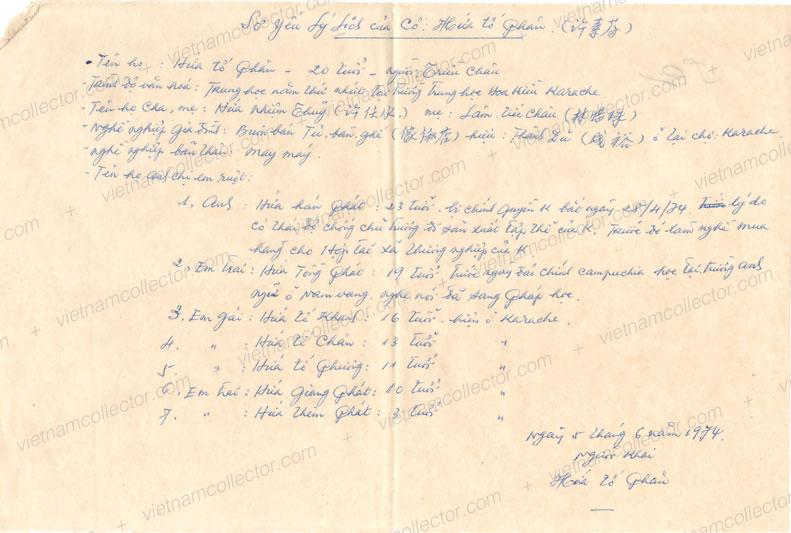 Sơ yếu lý lịch của Cô: Hứa tố Phân. (許素芬)
- Tên họ: Hứa tố Phân - 20 tuổi - người Triều Châu
- Trình độ văn hoá: Trung học năm thứ nhất tại trường Trung học Hoa Kiều Karache.
- Tên họ cha, mẹ: Hứa Nhiêm Thuỷ (許任水) mẹ: Lâm Tiêc Châu
- Nghề nghiệp gia đình: Buôn bán Tủ, bàn, ghế hiệu: ở tại chợ: Karache.
- nghề nghiệp bản thân: may máy.
- Tên họ anh chị em ruột:
1. Anh: Hứa hán Phát: 23 tuổi. bị chính quyền K bắt ngày 28/4/74 lý do
có thái độ chống chủ trương đi sản xuất tập thể của K. Trước đó làm nghề mua
hàng cho Hợp tác xã thương nghiệp của K.
2. Em trai: Hứa Tồng Phát: 19 tuổi. Trước ngày đảo chính campuchia học tại trường anh
ngữ ở Nam vang. nghe nói đã sang Pháp học.
3. Em gái: Hứa tố Khanh: 16 tuổi. hiện ở Karache.
4. " : Hứa tố Chân: 13 tuổi "
5. " : Hứa tố Phương: 11 tuổi "
6. Em trai: Hứa Giang Phát: 10 tuổi "
7. " : Hứa Thêm Phát: 3 tuổi "
Ngày 5 tháng 6 năm 1974.
Người khai
Hứa tố Phân
vietnamcollector.com